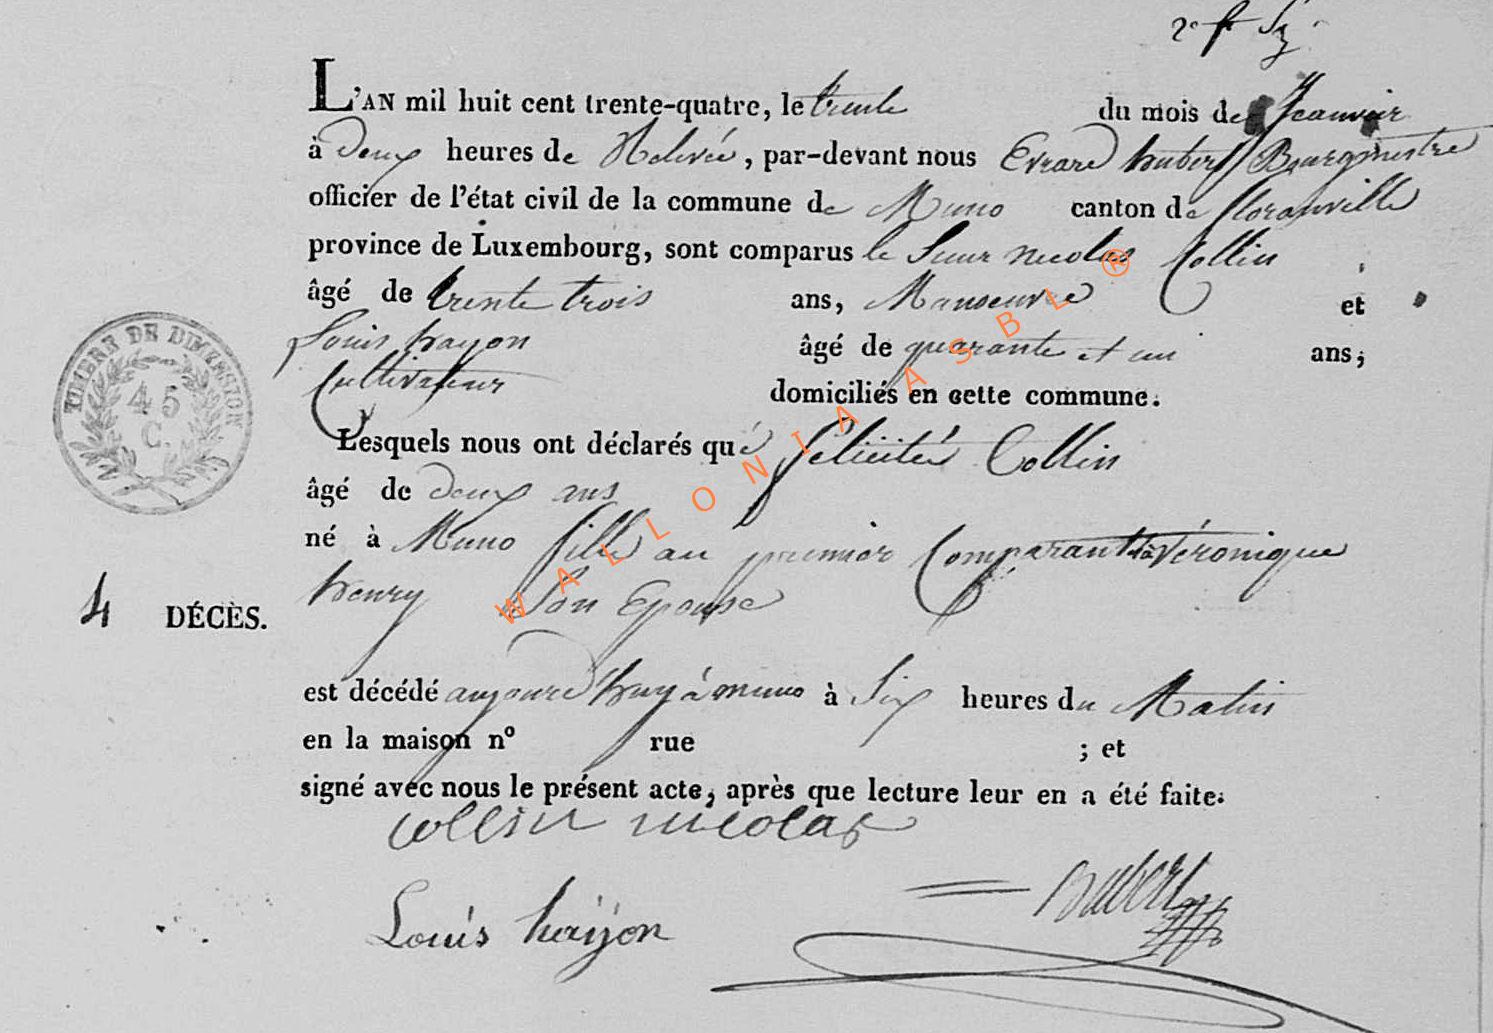 2e f Six
L'AN mil huit cent trente-quatre, le trente du mois de Jeanvier
à Deux heures de Relevée, par-devant nous Evrard hubert Bourgmestre
officier de l'état civil de la commune de Muno canton de floranville
province de Luxembourg, sont comparus le Sieur nicolas Collin
âgé de trente trois ans, Manoeuvre et
Louis hayon âgé de quarante et un ans;
Cultivateur domiciliés en cette commune.
Lesquels nous ont déclarés que félicité Collin
âgé de deux ans
né à Muno fille au premier Comparant et à véronique
henry Son Epouse
4 DÉCÈS.
est décédé aujourd'huy à muno à Six heures du Matin
en la maison nº rue ; et
signé avec nous le présent acte, après que lecture leur en a été faite.
collin nicolas
hubert
Louis haÿon
TIMBRE DE DIMENSION
45
C.
WALLONIA ASBL ®